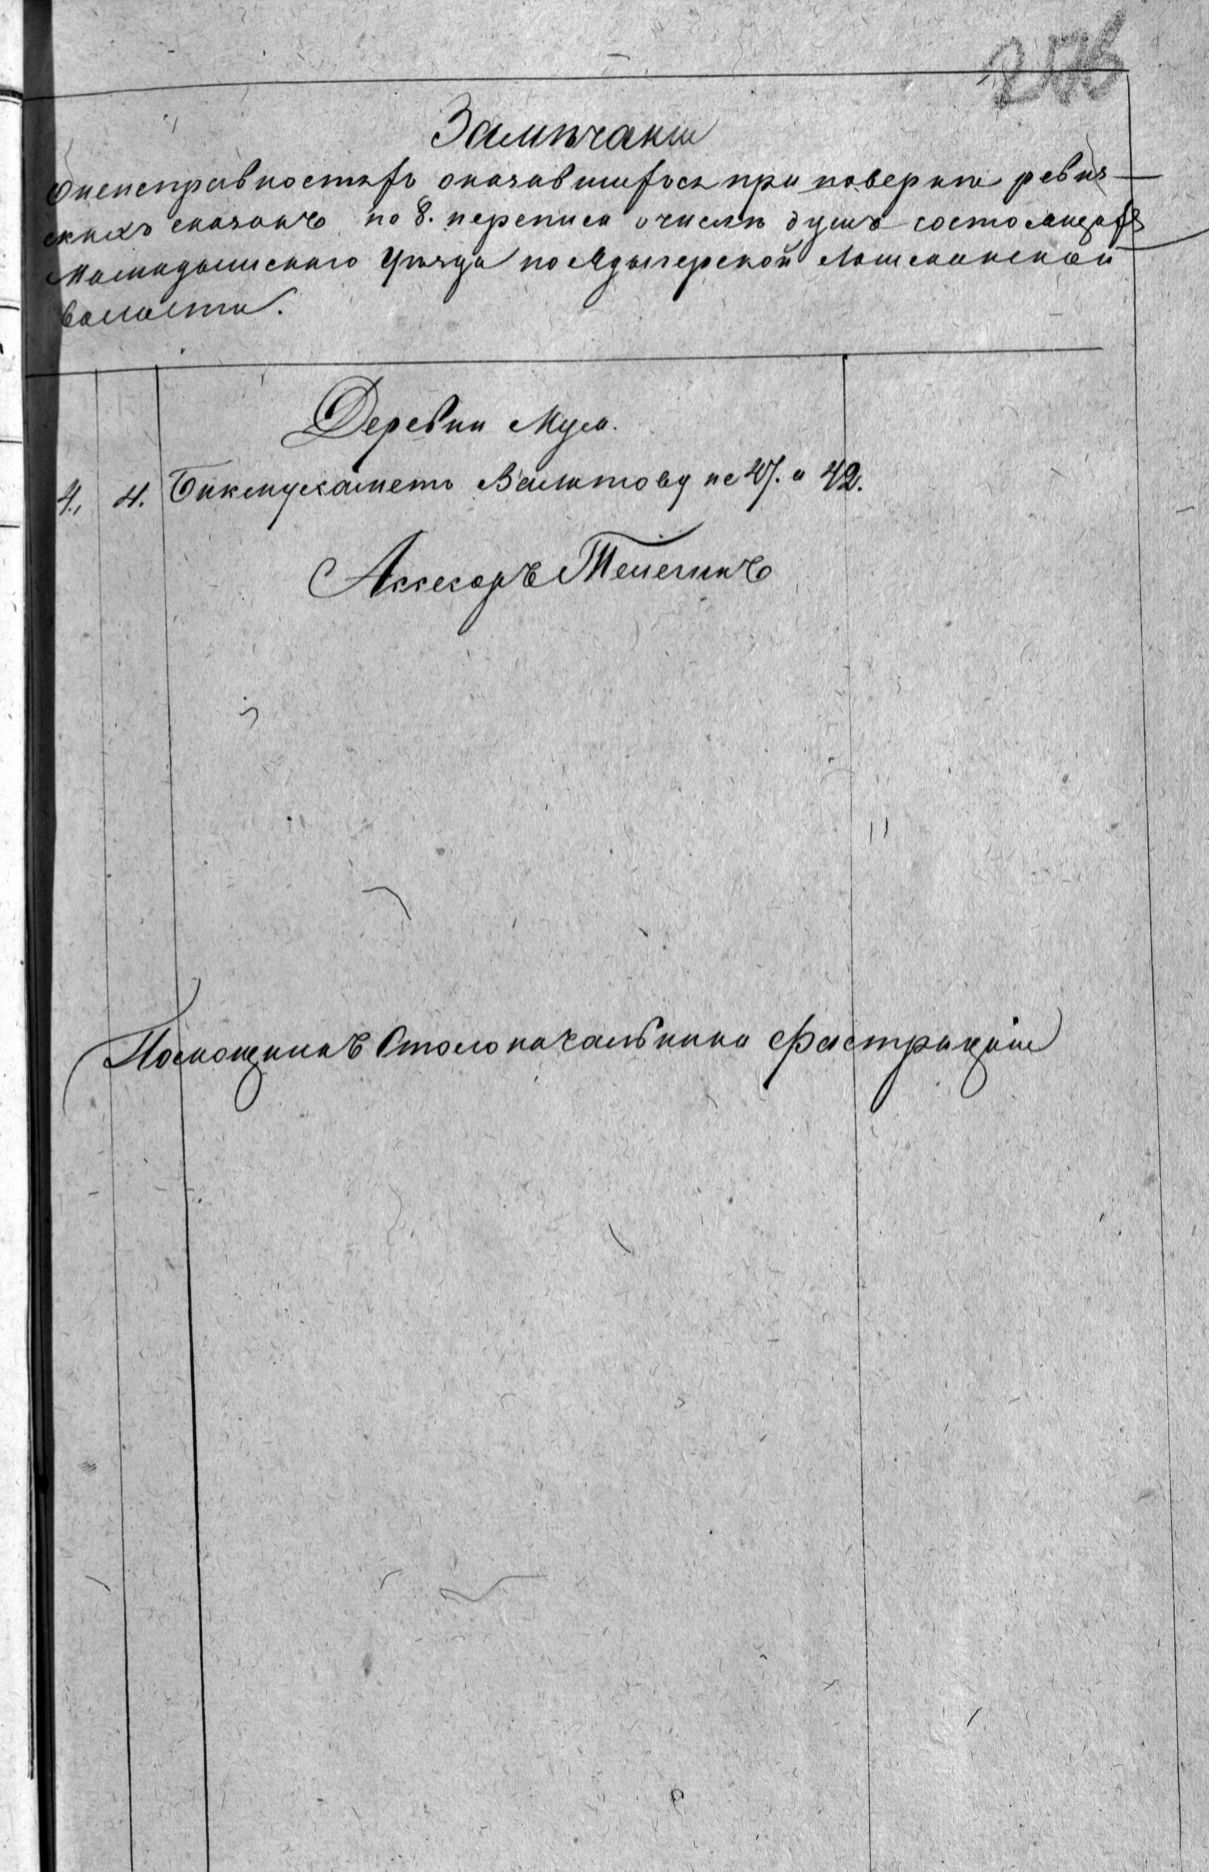 Замѣчаніе
О неисправностяхъ оказавшихся при поверкѣ ревиз-
скихъ сказокъ по 8. переписи о числѣ душъ состоящихъ
Мамадышскаго уѣзда по Адыгерской
волости.
Деревни Муса.
4., 4. Бикмухаметъ Валитову не 47. а 42.
Ассесоръ Телегинъ
Помощникъ Столоначальника